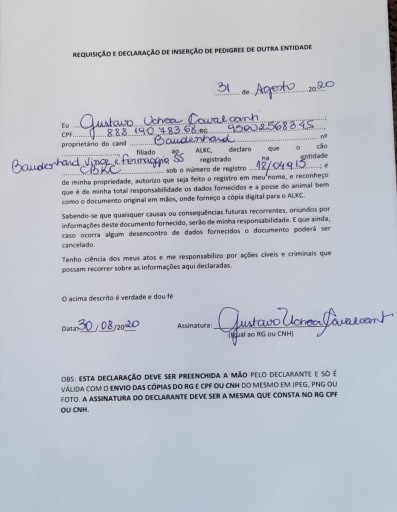 REQUISIÇÃO E DECLARAÇÃO DE INSERÇÃO DE PEDIGREE DE OUTRA ENTIDADE
31 de Agosto 2020
Eu Gustavo Uchoa Cavalcanti
CPF 888 190 783 68 RG 95002568345
proprietário do canil Baudenhard nº
filiado ao ALKC, declaro que o cão
Baudenhard SS registrado na entidade
CBKC sob o número de registro 18/04915; é
de minha propriedade, autorizo que seja feito o registro em meu nome, e reconheço
que é de minha total responsabilidade os dados fornecidos e a posse do animal bem
como o documento original em mãos, onde forneço a cópia digital para o ALKC.
Sabendo-se que quaisquer causas ou consequências futuras recorrentes, oriundos por
informações deste documento fornecido, serão de minha responsabilidade. E que ainda,
caso ocorra algum desencontro de dados fornecidos o documento poderá ser
cancelado.
Tenho ciência dos meus atos e me responsabilizo por ações cíveis e criminais que
possam recorrer sobre as informações aqui declaradas.
O acima descrito é verdade e dou fé
Data: 30/08/2020 Assinatura: Gustavo Uchoa Cavalcant
(igual ao RG ou CNH)
OBS: ESTA DECLARAÇÃO DEVE SER PREENCHIDA A MÃO PELO DECLARANTE E SÓ É
VÁLIDA COM O ENVIO DAS CÓPIAS DO RG E CPF OU CNH DO MESMO EM JPEG, PNG OU
FOTO. A ASSINATURA DO DECLARANTE DEVE SER A MESMA QUE CONSTA NO RG CPF
OU CNH.